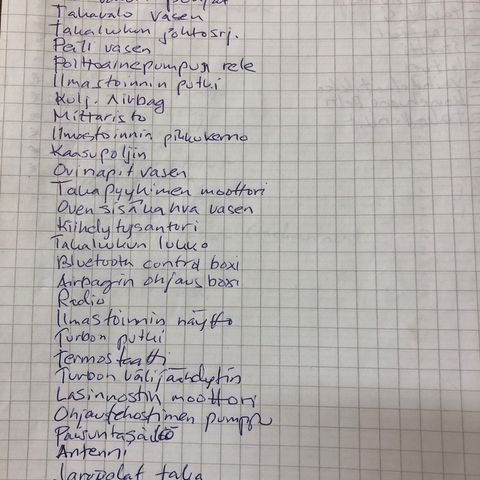 Takavalo vasen
Takaluukun johtosrj.
Peili vasen
Polttoainepumpun rele
Ilmastoinnin putki
Kulj. Airbag
Mittaristo
Ilmastoinnin pikkukenno
Kaasupoljin
Ovinapit vasen
Takapyyhimen moottori
Oven sisäkahva vasen
Kiihdytysanturi
Takaluukun lukko
Bluetooth control boxi
Airbagin ohjaus boxi
Radio
Ilmastoinnin näyttö
Turbon putki
Termostaatti
Turbon välijäähdytin
Lasinnostin moottori
Ohjaustehostimen pumppu
Paisuntasäiliö
Antenni
taka